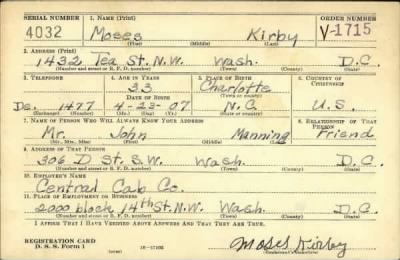 SERIAL NUMBER 1. NAME (Print) ORDER NUMBER
4032 Moses Kirby V-1715
(First) (Middle) (Last)
2. ADDRESS (Print)
1432 Tea St. N.W. Wash. D.C.
(Number and street or R. F. D. number) (Town) (County) (State)
3. TELEPHONE 4. AGE IN YEARS 5. PLACE OF BIRTH 6. COUNTRY OF CITIZENSHIP
33 Charlotte
DATE OF BIRTH (Town or county)
De. 1477 4-23-07 N.C. U.S.
(Exchange) (Number) (Mo.) (Day) (Yr.) (State or country)
7. NAME OF PERSON WHO WILL ALWAYS KNOW YOUR ADDRESS 8. RELATIONSHIP OF THAT PERSON
Mr. John Manning Friend
(Mr., Mrs., Miss) (First) (Middle) (Last)
9. ADDRESS OF THAT PERSON
306 D St. S.W. Wash. D.C.
(Number and street or R. F. D. number) (Town) (County) (State)
10. EMPLOYER'S NAME
Central Cab Co.
11. PLACE OF EMPLOYMENT OR BUSINESS
2000 block 14th St. N.W. Wash. D.C.
(Number and street or R. F. D. number) (Town) (County) (State)
I AFFIRM THAT I HAVE VERIFIED ABOVE ANSWERS AND THAT THEY ARE TRUE.
REGISTRATION CARD
D. S. S. Form 1 Moses Kirby
(Registrant's signature)